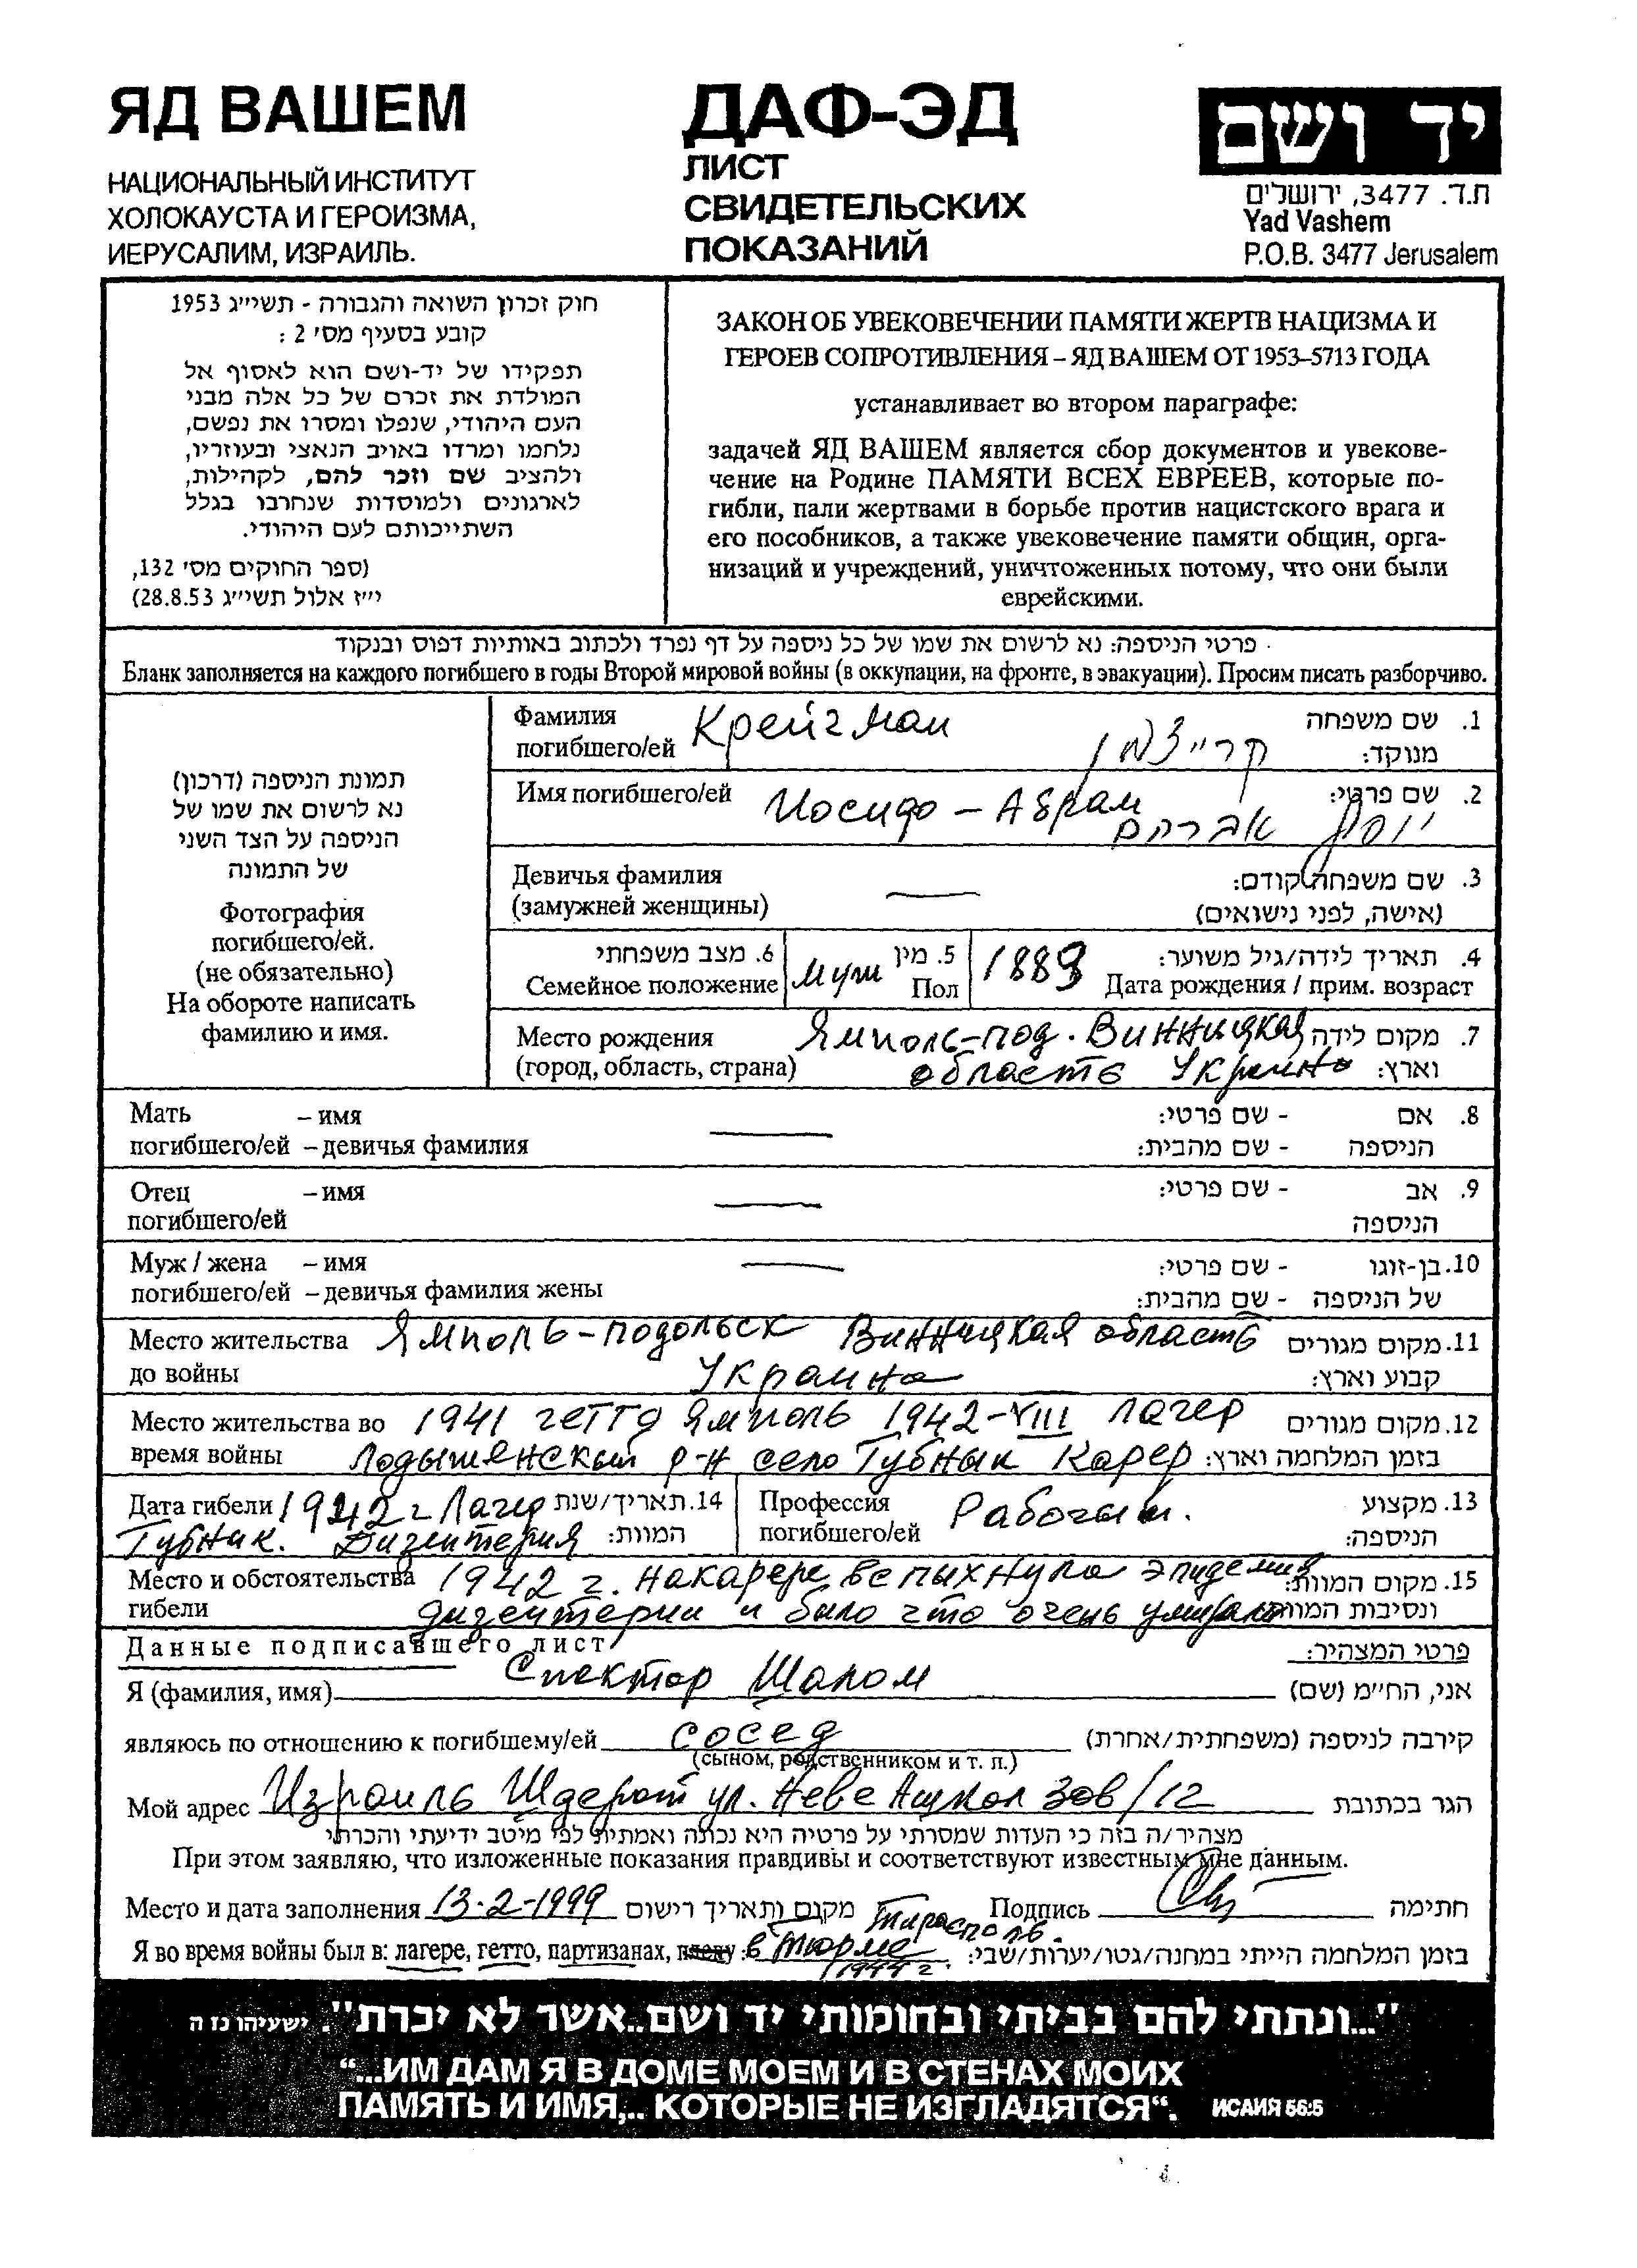 ЯД ВАШЕМ
НАЦИОНАЛЬНЫЙ ИНСТИТУТ
ХОЛОКАУСТА И ГЕРОИЗМА,
ИЕРУСАЛИМ, ИЗРАИЛЬ.
ДАФ-ЭД
ЛИСТ
СВИДЕТЕЛЬСКИХ
ПОКАЗАНИЙ
יד ושם
ת.ד. 3477, ירושלים
Yad Vashem
P.O.B. 3477 Jerusalem
חוק זכרון השואה והגבורה - תשי״ג 1953
קובע בסעיף מס׳ 2 :
תפקידו של יד-ושם הוא לאסוף אל
המולדת את זכרם של כל אלה מבני
העם היהודי, שנפלו ומסרו את נפשם,
נלחמו ומרדו באויב הנאצי ובעוזריו,
ולהציב שם וזכר להם, לקהילות,
לארגונים ולמוסדות שנחרבו בגלל
השתייכותם לעם היהודי.
(ספר החוקים מס׳ 132,
י״ז אלול תשי״ג 28.8.53)
ЗАКОН ОБ УВЕКОВЕЧЕНИИ ПАМЯТИ ЖЕРТВ НАЦИЗМА И
ГЕРОЕВ СОПРОТИВЛЕНИЯ – ЯД ВАШЕМ ОТ 1953–5713 ГОДА
устанавливает во втором параграфе:
задачей ЯД ВАШЕМ является сбор документов и увекове-
чение на Родине ПАМЯТИ ВСЕХ ЕВРЕЕВ, которые по-
гибли, пали жертвами в борьбе против нацистского врага и
его пособников, а также увековечение памяти общин, орга-
низаций и учреждений, уничтоженных потому, что они были
еврейскими.
פרטי הניספה: נא לרשום את שמו של כל ניספה על דף נפרד ולכתוב באותיות דפוס ובנקוד
Бланк заполняется на каждого погибшего в годы Второй мировой войны (в оккупации, на фронте, в эвакуации). Просим писать разборчиво.
תמונת הניספה (דרכון)
נא לרשום את שמו של
הניספה על הצד השני
של התמונה
Фотография
погибшего/ей.
(не обязательно)
На обороте написать
фамилию и имя.
Фамилия Крейгман 1. שם משפחה
погибшего/ей קרייצמן מנוקד:
Имя погибшего/ей Иосифо - Абрам 2. שם פרטי:
יוסף אברהם
Девичья фамилия 3. שם משפחה קודם:
(замужней женщины) (אישה, לפני נישואים)
6. מצב משפחתי 5. מין 4. תאריך לידה/גיל משוער:
Семейное положение муж Пол 1889 Дата рождения / прим. возраст
Место рождения Ямполь-под. Винницкая 7. מקום לידה
(город, область, страна) область Украина וארץ:
Мать – имя 8. אם - שם פרטי:
погибшего/ей – девичья фамилия הניספה - שם מהבית:
Отец – имя 9. אב - שם פרטי:
погибшего/ей הניספה
Муж / жена – имя 10. בן-זוגו - שם פרטי:
погибшего/ей – девичья фамилия жены של הניספה - שם מהבית:
Место жительства Ямполь-подольск Винницкая область 11. מקום מגורים
до войны Украина קבוע וארץ:
Место жительства во 1941 гетто Ямполь 1942-VIII лагер 12. מקום מגורים
время войны Лодыженский р-н село Губнык Карер בזמן המלחמה וארץ:
Дата гибели 1942 г Лагер 14. תאריך/שנת Профессия Рабочий. 13. מקצוע
Губник. Дизентерия המוות: погибшего/ей הניספה:
Место и обстоятельства 1942 г. на карере вспыхнула эпидемия 15. מקום המוות:
гибели дизентерии и было что очень умирало ונסיבות המוות
Данные подписавшего лист פרטי המצהיר:
Я (фамилия, имя) Спектор Шалом אני, הח״מ (שם)
являюсь по отношению к погибшему/ей сосед קירבה לניספה (משפחתית/אחרת)
(сыном, родственником и т. п.)
Мой адрес Израиль Шдерот ул. Неве Ашкол 306/12 הגר בכתובת
מצהיר/ה בזה כי העדות שמסרתי על פרטיה היא נכונה ואמתית לפי מיטב ידיעתי והכרתי
При этом заявляю, что изложенные показания правдивы и соответствуют известным мне данным.
Место и дата заполнения 13-2-1999 מקום ותאריך רישום Подпись חתימה
Тирасполь.
Я во время войны был в: лагере, гетто, партизанах, плену: в тюрме בזמן המלחמה הייתי במחנה/גטו/יערות/שבי:
1944 г.
"...ונתתי להם בביתי ובחומותי יד ושם..אשר לא יכרת". ישעיהו נז ה
“...ИМ ДАМ Я В ДОМЕ МОЕМ И В СТЕНАХ МОИХ
ПАМЯТЬ И ИМЯ,.. КОТОРЫЕ НЕ ИЗГЛАДЯТСЯ“. ИСАИЯ 56:5